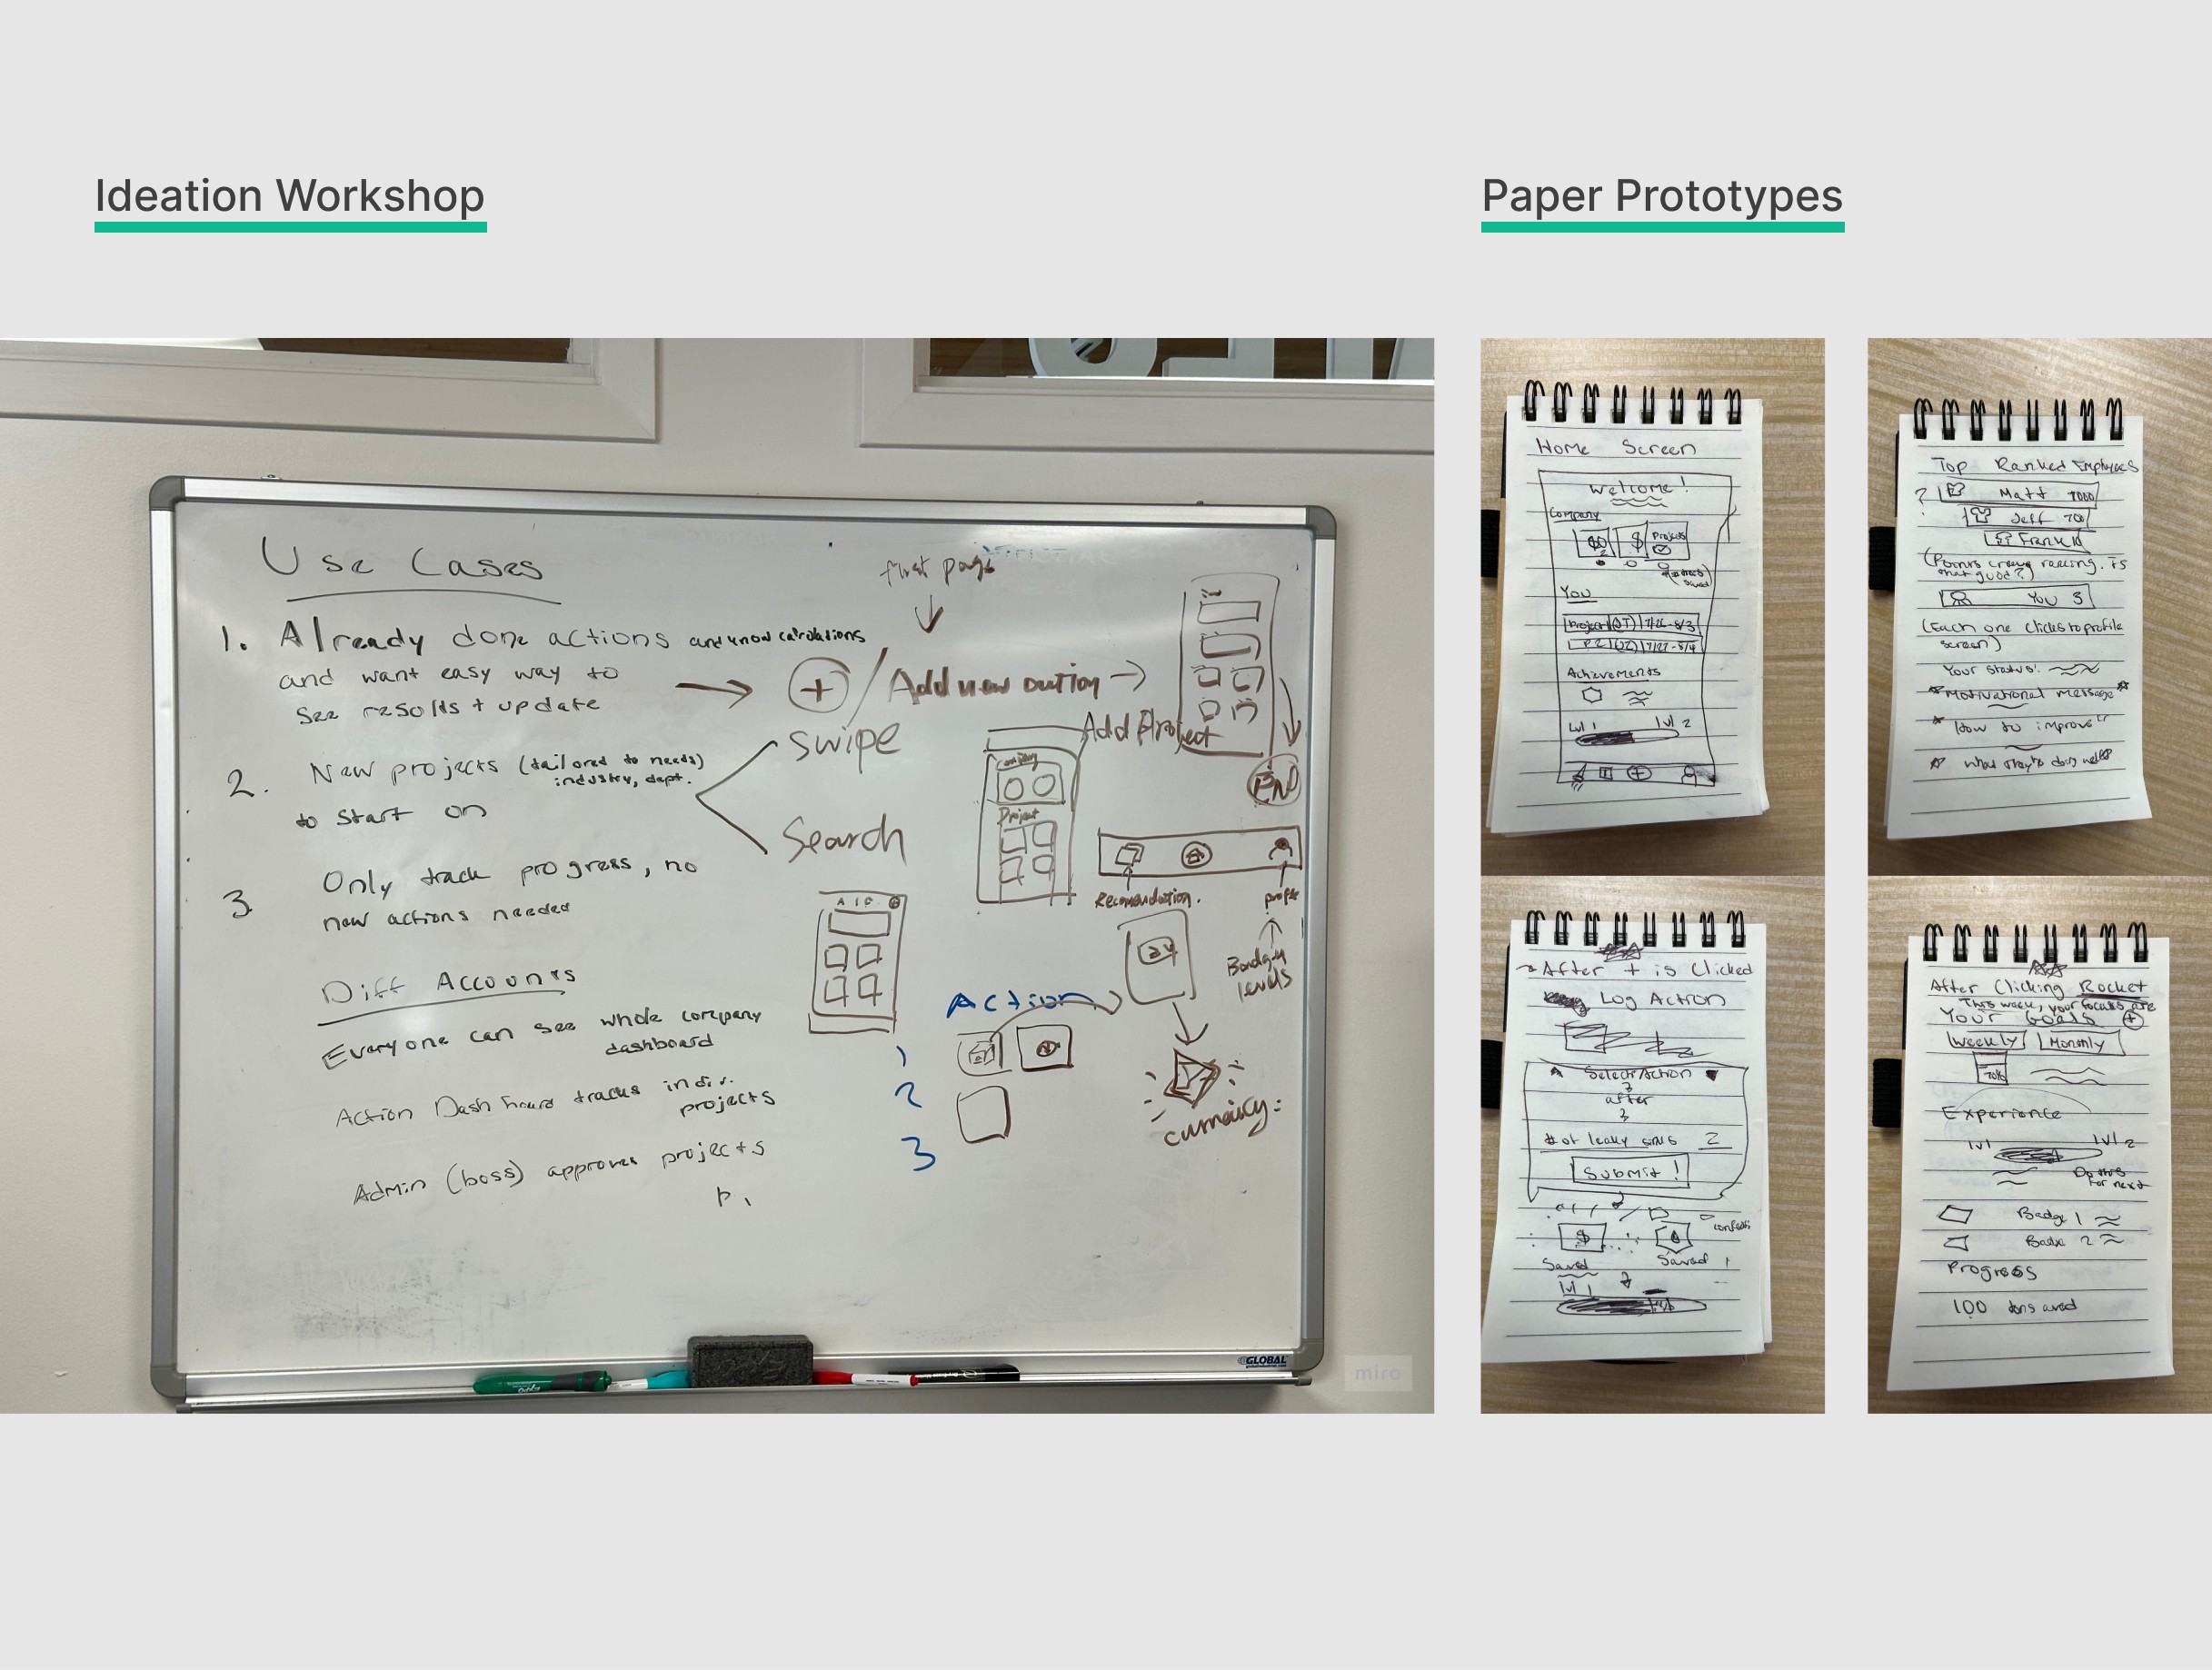 Ideation Workshop
Use Cases
1. Already done actions and know calculations
and want easy way to
see results + update
2. New projects (tailored to needs)
industry, dept.
to start on
3 Only track progress, no
new actions needed
Diff Accounts
Everyone can see whole company
dashboard
Action Dashboard tracks indiv.
projects
Admin (boss) approves projects
first page
+ / Add new action
swipe
Search
Add Project
Project
END
Recomendation.
profile
Badge
levels
Action
1
2
3
currency:
GLOBAL
miro
Paper Prototypes
Home Screen
Welcome!
Company
$ Projects
You
Achievements
Lvl 1 lvl 2
Top Ranked Employees
? Matt 7000
Jeff 700
Frank 10
(Points creates ranking. Is
that good?)
You 3
(Each one clicks to profile
screen)
Your status:
*Motivational message*
* How to improve
After + is Clicked
Log Action
Select Action
after
# of leaky sinks 2
Submit!
confetti
$
Saved Saved
lvl 1
After Clicking Rocket
This week, your focuses are
Your Goals +
Weekly Monthly
70%
Experience
lvl 1 lvl 2
Do this
for next
Badge 1
Badge 2
Progress
100 tons saved